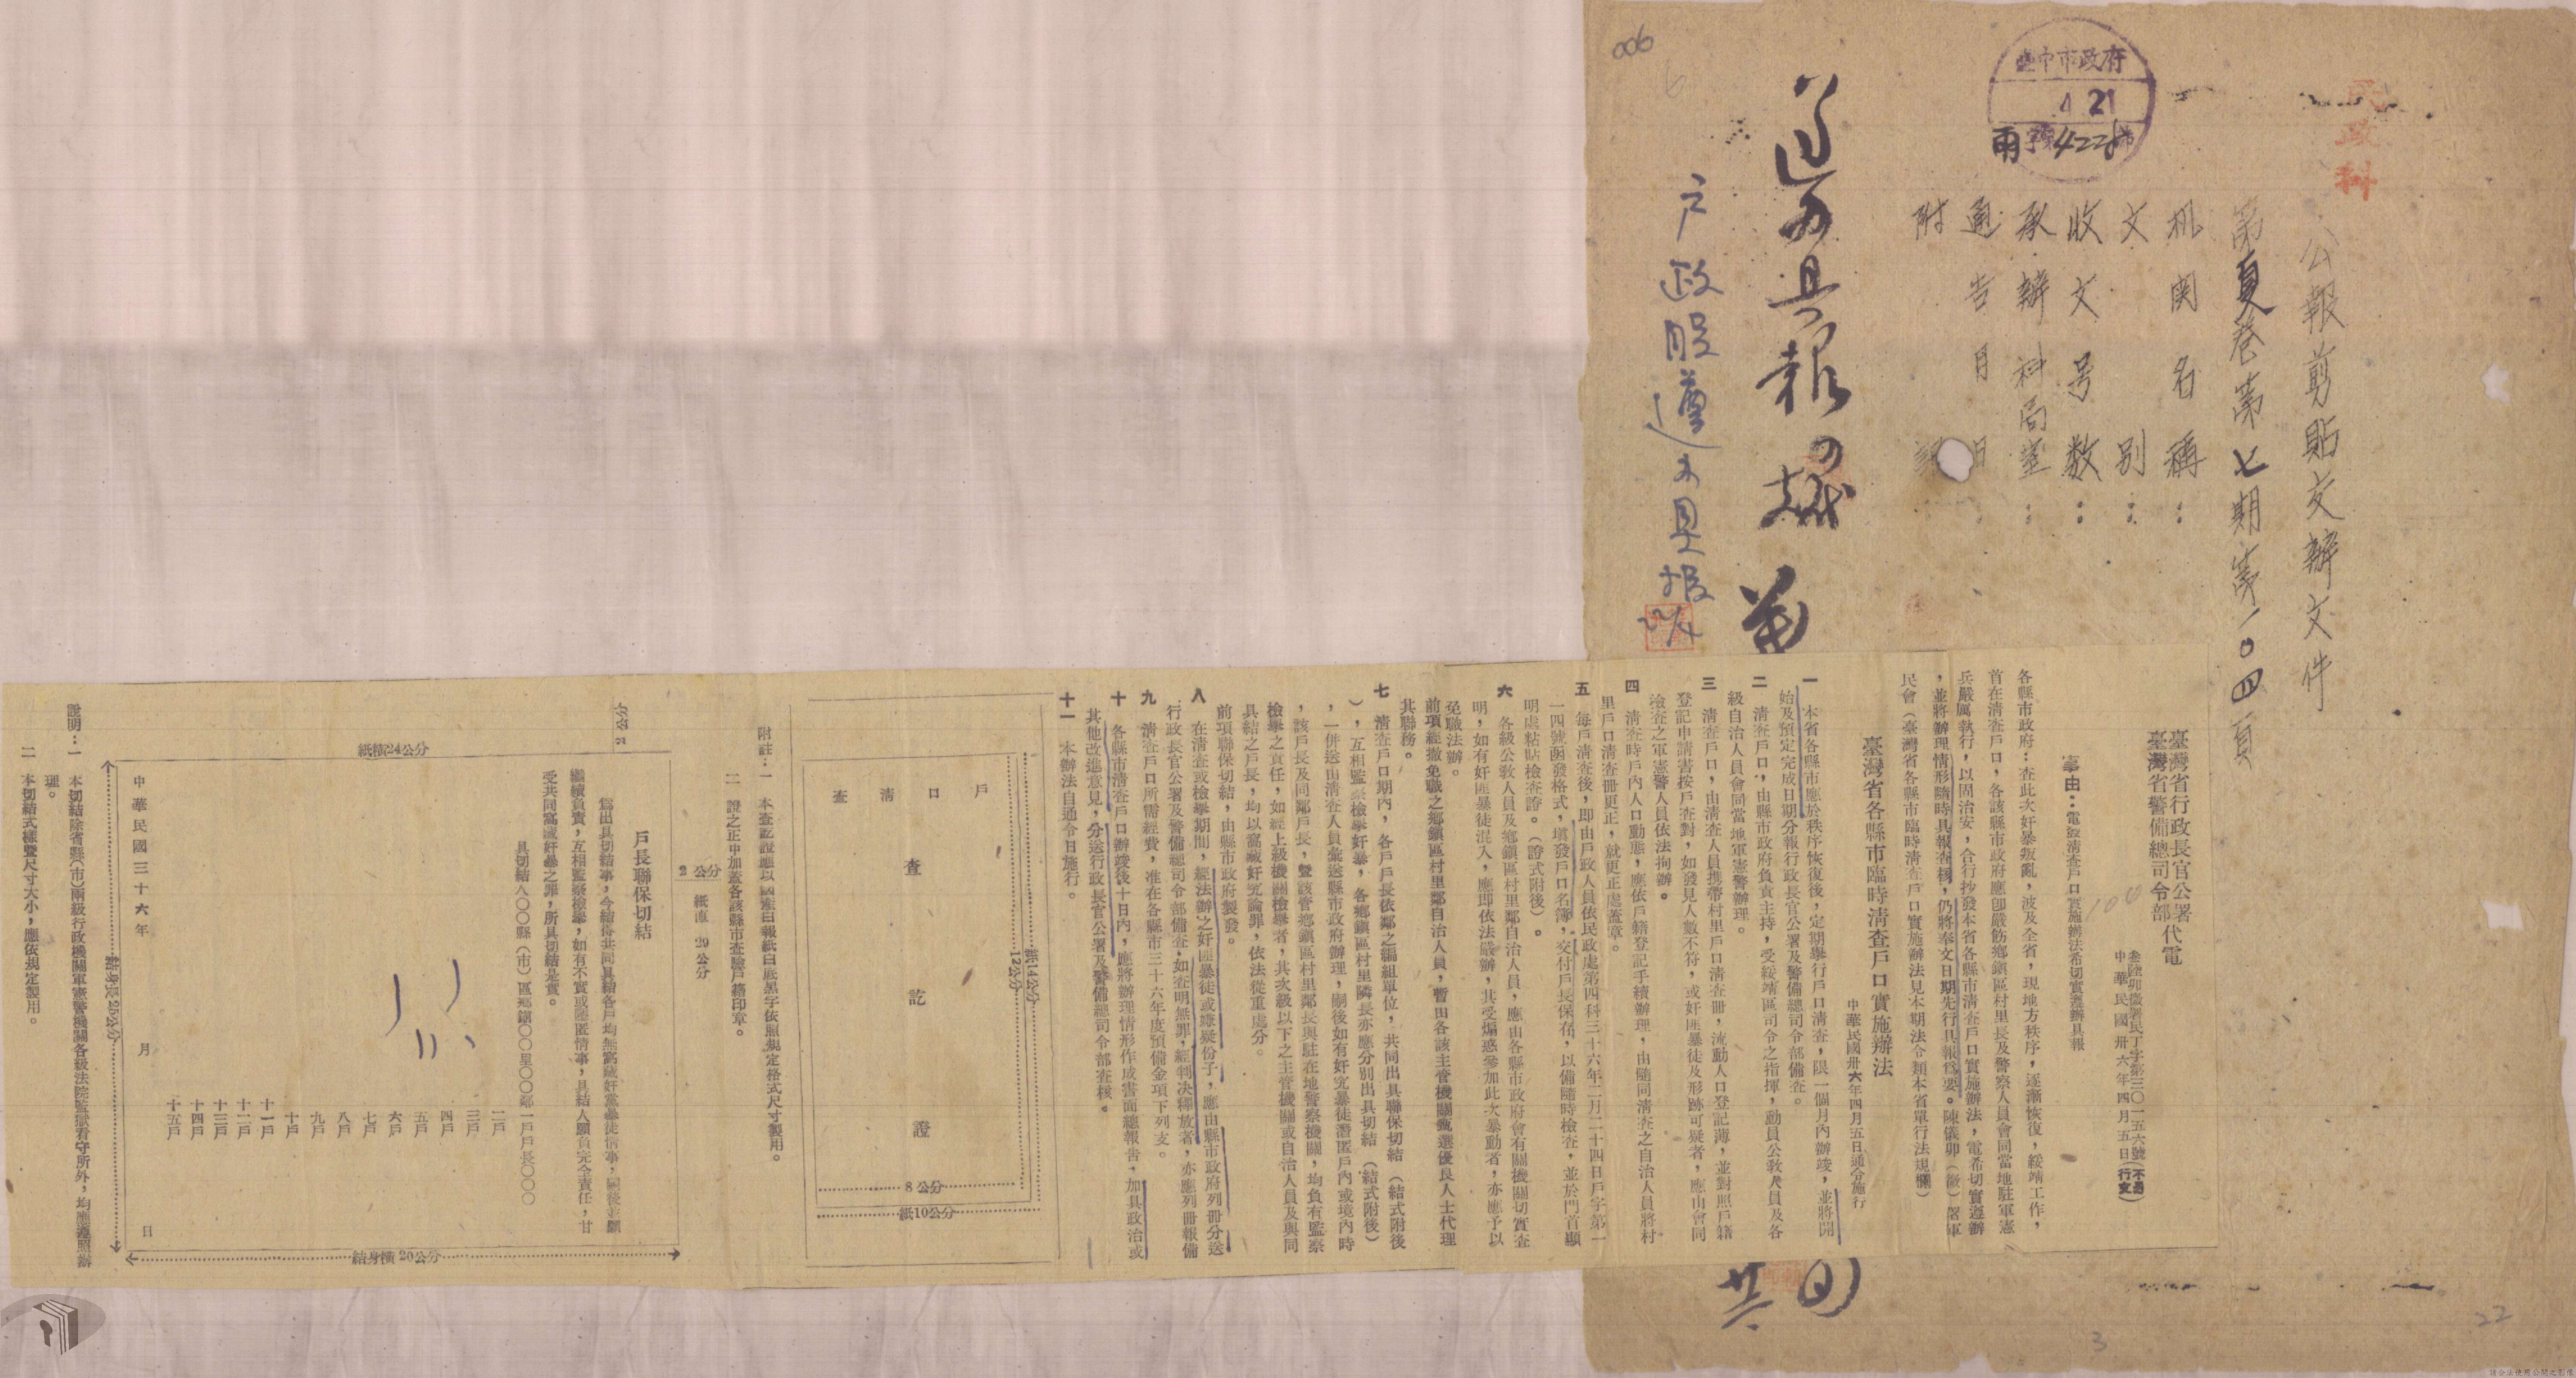 民政科
公報剪貼交辦文件
第夏卷第七期第一〇四頁
机関名稱:
文別:
收文号数:
承辦科局室:
通告月日
附
臺中市政府
4 21
雨字第4228號
006
遵办具報
戶政股遵办具报
22/4
臺灣省行政長官公署
臺灣省警備總司令部代電
叁陸卯徵署民丁字第三〇一五六號(不另行文)
中華民國卅六年四月五日
事由:電發清查戶口實施辦法希切實遵辦具報
各縣市政府:查此次奸暴叛亂,波及全省,現地方秩序,逐漸恢復,綏靖工作,
首在清查戶口,各該縣市政府應卽嚴飭鄉鎮區村里長及警察人員會同當地駐軍憲
兵嚴厲執行,以固治安,合行抄發本省各縣市清查戶口實施辦法,電希切實遵辦
,並將辦理情形隨時具報查核,仍將奉文日期先行具報爲要。陳儀卯(徵)署軍
民會(臺灣省各縣市臨時清查戶口實施辦法見本期法令類本省單行法規欄)
臺灣省各縣市臨時清查戶口實施辦法
中華民國卅六年四月五日通令施行
一 本省各縣市應於秩序恢復後,定期舉行戶口清查,限一個月內辦竣,並將開
始及預定完成日期分報行政長官公署及警備總司令部備查。
二 清查戶口,由縣市政府負責主持,受綏靖區司令之指揮,動員公教人員及各
級自治人員會同當地軍憲警辦理。
三 清查戶口,由清查人員携帶村里戶口清查冊,流動人口登記薄,並對照戶籍
登記申請書按戶查對,如發見人數不符,或奸匪暴徒及形跡可疑者,應由會同
檢查之軍憲警人員依法拘辦。
四 清查時戶內人口動態,應依戶籍登記手續辦理,由隨同清查之自治人員將村
里戶口清查冊更正,就更正處蓋章。
五 每戶清查後,即由戶政人員依民政處第四科三十六年二月二十四日戶字第一
一四號函發格式,填發戶口名簿,交付戶長保存,以備隨時檢查,並於門首顯
明處粘貼檢查證。(證式附後)。
六 各級公教人員及鄉鎮區村里鄰自治人員,應由各縣市政府會有關機關切實查
明,如有奸匪暴徒混入,應即依法嚴辦,其受煽惑參加此次暴動者,亦應予以
免職法辦。
前項經撤免職之鄉鎮區村里鄰自治人員,暫由各該主管機關甄選優良人士代理
其職務。
七 清查戶口期內,各戶戶長依鄰之編組單位,共同出具聯保切結(結式附後
),互相監察檢舉奸暴,各鄉鎮區村里隣長亦應分別出具切結(結式附後)
,一併送由清查人員彙送縣市政府辦理,嗣後如有奸宄暴徒潛匿戶內或境內時
,該戶長及同鄰戶長,曁該管鄉鎮區村里鄰長與駐在地警察機關,均負有監察
檢舉之責任,如經上級機關檢舉者,其次級以下之主管機關或自治人員及與同
具結之戶長,均以窩藏奸宄論罪,依法從重處分。
前項聯保切結,由縣市政府製發。
八 在清查或檢舉期間,經法辦之奸匪暴徒或嫌疑份子,應由縣市政府列冊分送
行政長官公署及警備總司令部備查,如查明無罪,經判決釋放者,亦應列冊報備
九 清查戶口所需經費,准在各縣市三十六年度預備金項下列支。
十 各縣市清查戶口辦竣後十日內,應將辦理情形作成書面總報告,加具政治或
其他改進意見,分送行政長官公署及警備總司令部查核。
十一 本辦法自通令日施行。
戶口清查
查訖證
紙14公分
12公分
8公分
紙10公分
附註:一 本查訖證應以國產白報紙白底黑字依照規定格式尺寸製用。
二 證之正中加蓋各該縣市查驗戶籍印章。
2公分
紙直 29公分
2公分
紙橫24公分
戶長聯保切結
爲出具切結事,今結得共同具結各戶均無窩藏奸黨暴徒情事,嗣後並願
繼續負責,互相監察檢舉,如有不實或隱匿情事,具結人願負完全責任,甘
受共同窩藏奸暴之罪,所具切結是實。
具切結人〇〇縣(市)區鄉鎮〇〇里〇〇鄰一戶戶長〇〇〇
二戶
三戶
四戶
五戶
六戶
七戶
八戶
九戶
十戶
十一戶
十二戶
十三戶
十四戶
十五戶
中華民國三十六年 月 日
結身長25公分
結身橫20公分
說明:一 本切結除省縣(市)兩級行政機關軍憲警機關各級法院監獄看守所外,均應遵照辦
理。
二 本切結式樣曁尺寸大小,應依規定製用。
3
22